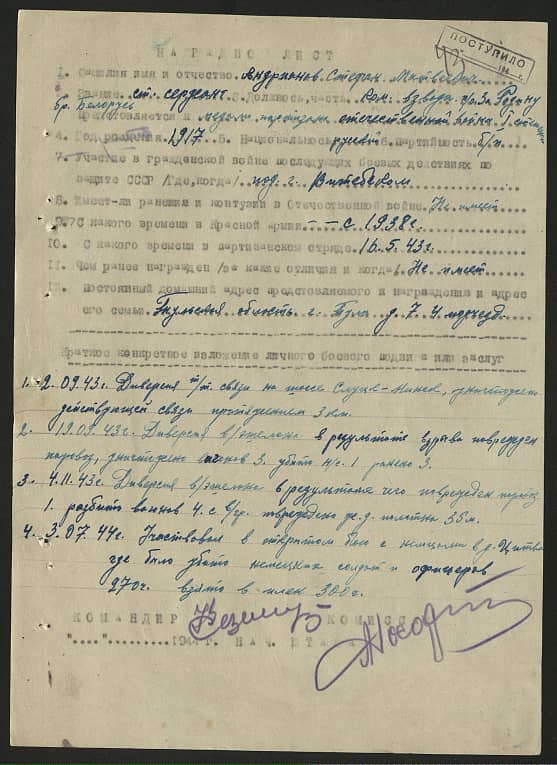 ПОСТУПИЛО
НАГРАДНО ЛИСТ
1. Фамилия имя и отчество Андрианов Стефан Матвеевич
2. Звание ст. сержант 3. Должнось, часть Ком. взвода п/о За Родину
бр. Беларусь Представляется к медали партизан отечественной войны I степени
4. Год рождения 1917 5. Национальнось русский 6. Партийность б/п
7. Участие в гражданской войне последующих боевых действиях по
защите СССР /где, когда/ под г. Витебском
8. Имеет-ли ранения и контузии в Отечественной войне. Не имеет
9. С какого времени в Красной армии - - с 1938г.
10. С какого времени в партизанском отряде. 16.5.43г.
11. Чем ранее награжден /за какие отличия и когда/. Не имеет
12. Постоянный домашний адрес представляемого к награждению и адрес
его семьи. Тульская область г. Тула д. 7. Ч.
Краткое конкретное изложение личного боевого подвига или заслуг
1. 2.09.43г. Диверсия т/т. связи на шоссе Слуцк-Минск, уничтожен
действующей связи протяжением 3 км.
2. 19.09.43г. Диверсия в/эшелона в результате взрыва поврежден
паровоз, уничтожено вагонов 3. убит н/с. 1 ранено 3.
3. 4.11.43г. Диверсия в/эшелона в результате чего поврежден
1. разбито вагонов 4. с повреждено ж.д. полотна 35м.
4. 3.07.44г. Участвовал в открытом бою с немцами в д. Цитва
где было убито немецких солдат и офицеров
270ч. взято в плен 300г.
КОМАНДИР КОМИСС
"....".........1944г. НАЧ. ШТАБА